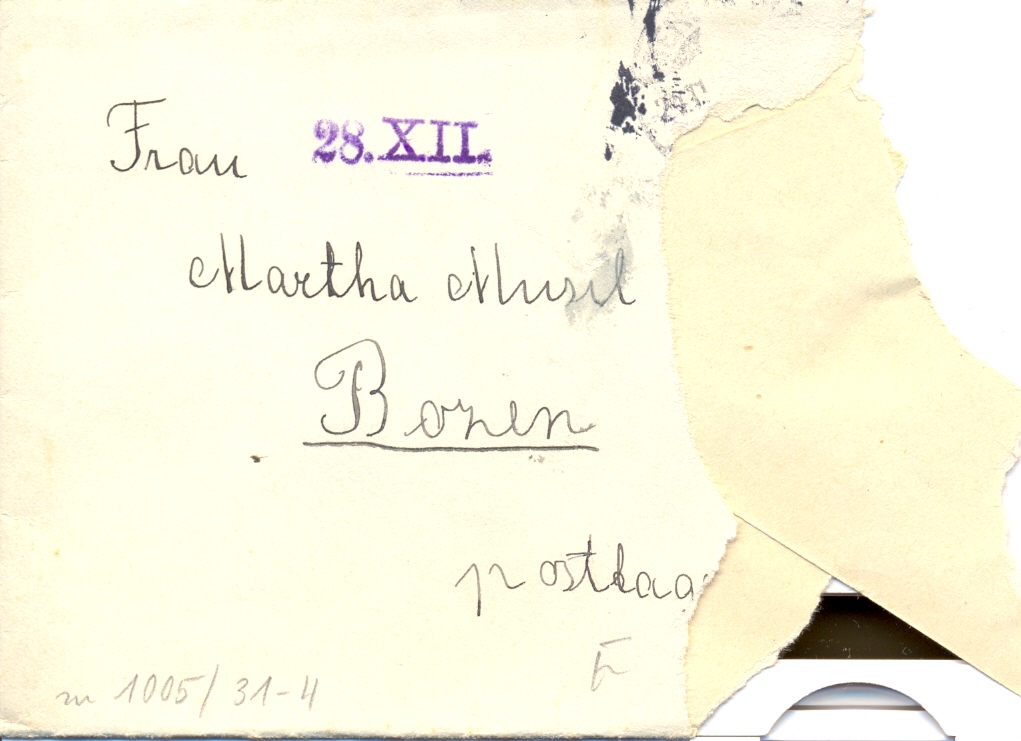 Frau
28.XII.
Martha Musil
Bozen
postlag
zu 1005/31-4